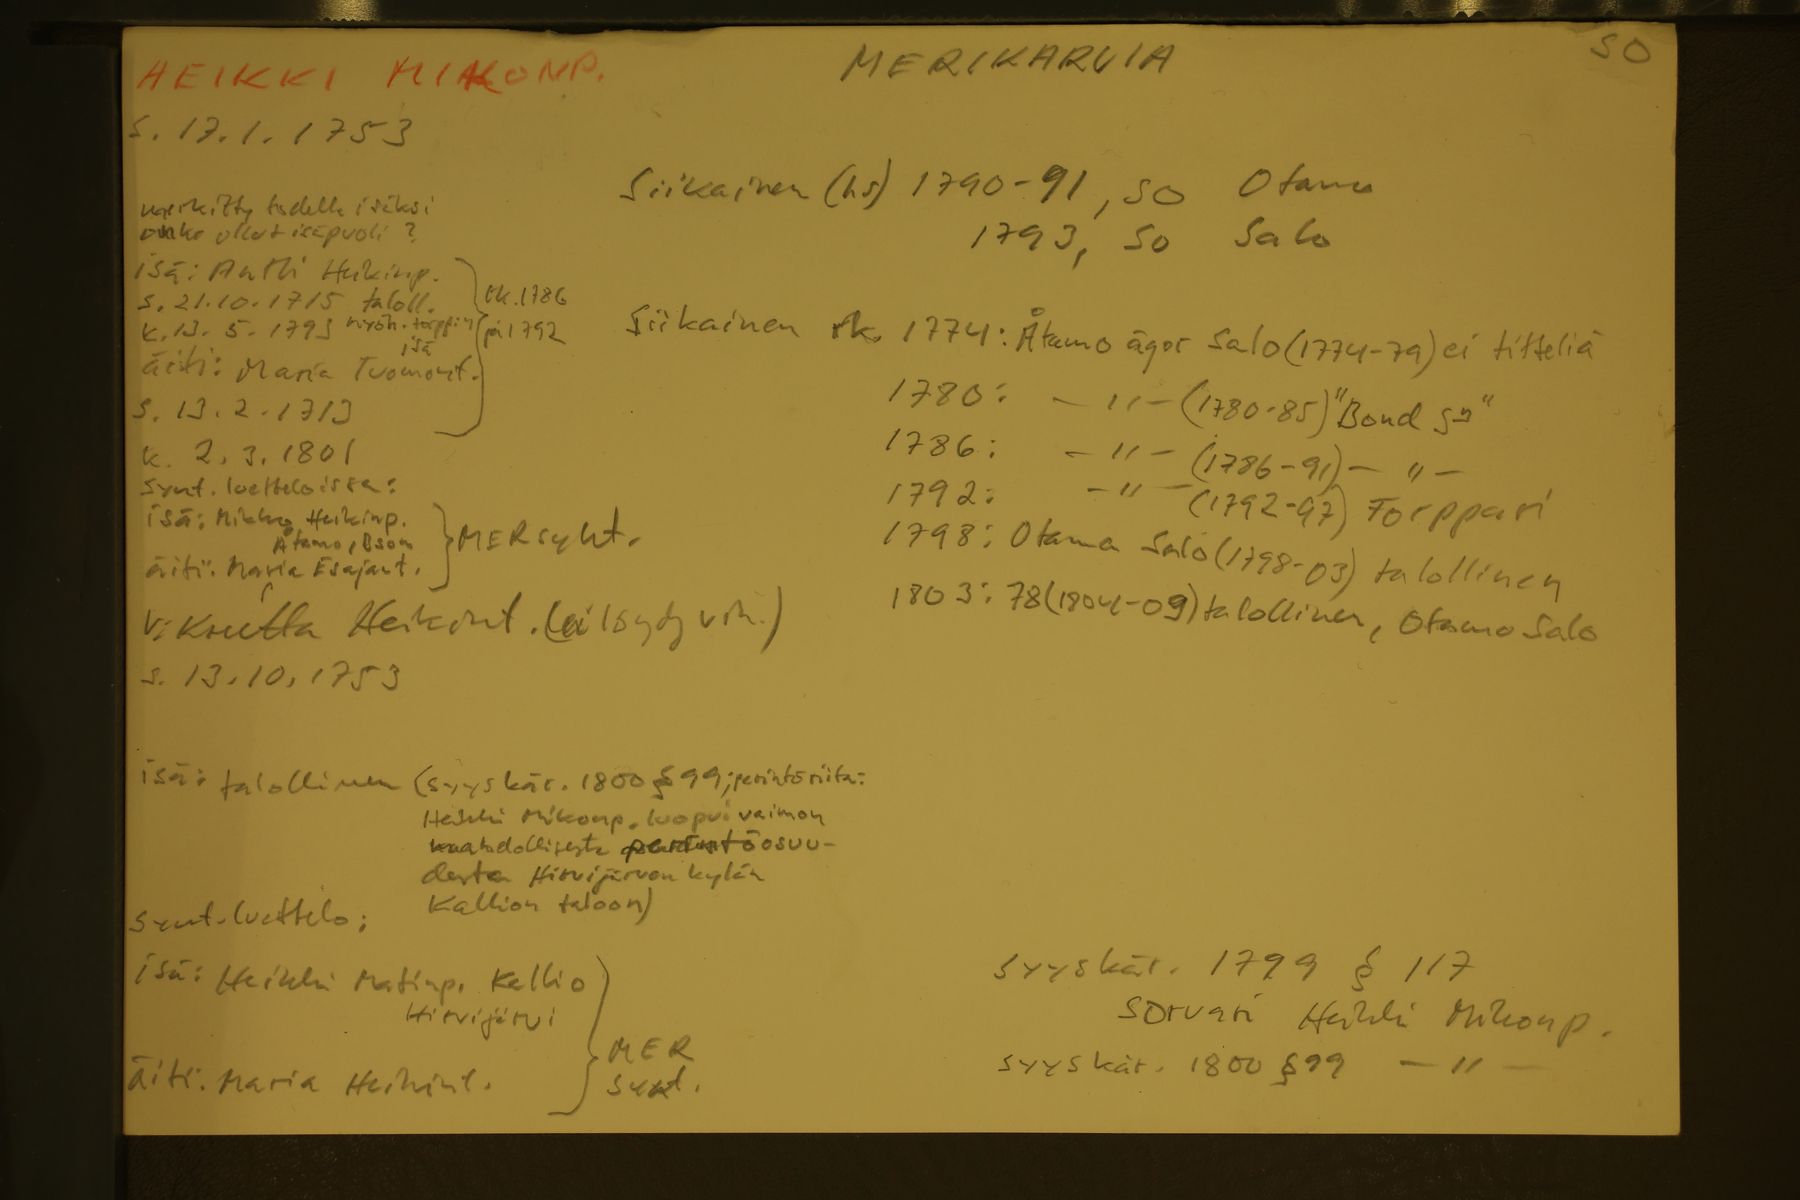 HEIKKI MIKONP.
MERIKARVIA
SO
s. 17.1.1753
merkitty todella isäksi
onko ollut isäpuoli?
isä: Antti Heikinp.
s. 21.10.1715 taloll.
k. 13.5.1793 myöh. torppin
isä
rk. 1786
ja 1792
äiti: Maria Tuomont.
s. 13.2.1713
k. 2.3.1801
synt. luetteloissa:
isä: Mikko Heikinp.
Åtamo, Bson
äiti: Maria Esajant.
MER synt.
v: Kreetta Heikint. (ei löydy vih.)
s. 13.10.1753
isä: talollinen (syyskär. 1800 § 99; perintöriita:
Heikki Mikonp. luopui vaimon
mahdollisesta perintöosuu-
desta Hirvijärven kylän
Kallion taloon)
synt. luettelo:
isä: Heikki Matinp. Kallio
Hirvijärvi
äiti: Maria Heikint.
MER
synt.
Siikainen (hs) 1790-91, SO Otamo
1793, SO Salo
Siikainen rk. 1774: Åtamo ägor Salo (1774-79) ei titteliä
1780: -"- (1780-85) "Bond s"
1786: -"- (1786-91) -"-
1792: -"- (1792-97) Torppari
1798: Otamo Salo (1798-03) talollinen
1803: 78 (1804-09) talollinen, Otamo Salo
syyskär. 1799 § 117
Sorvari Heikki Mikonp.
syyskär. 1800 § 99 -"-